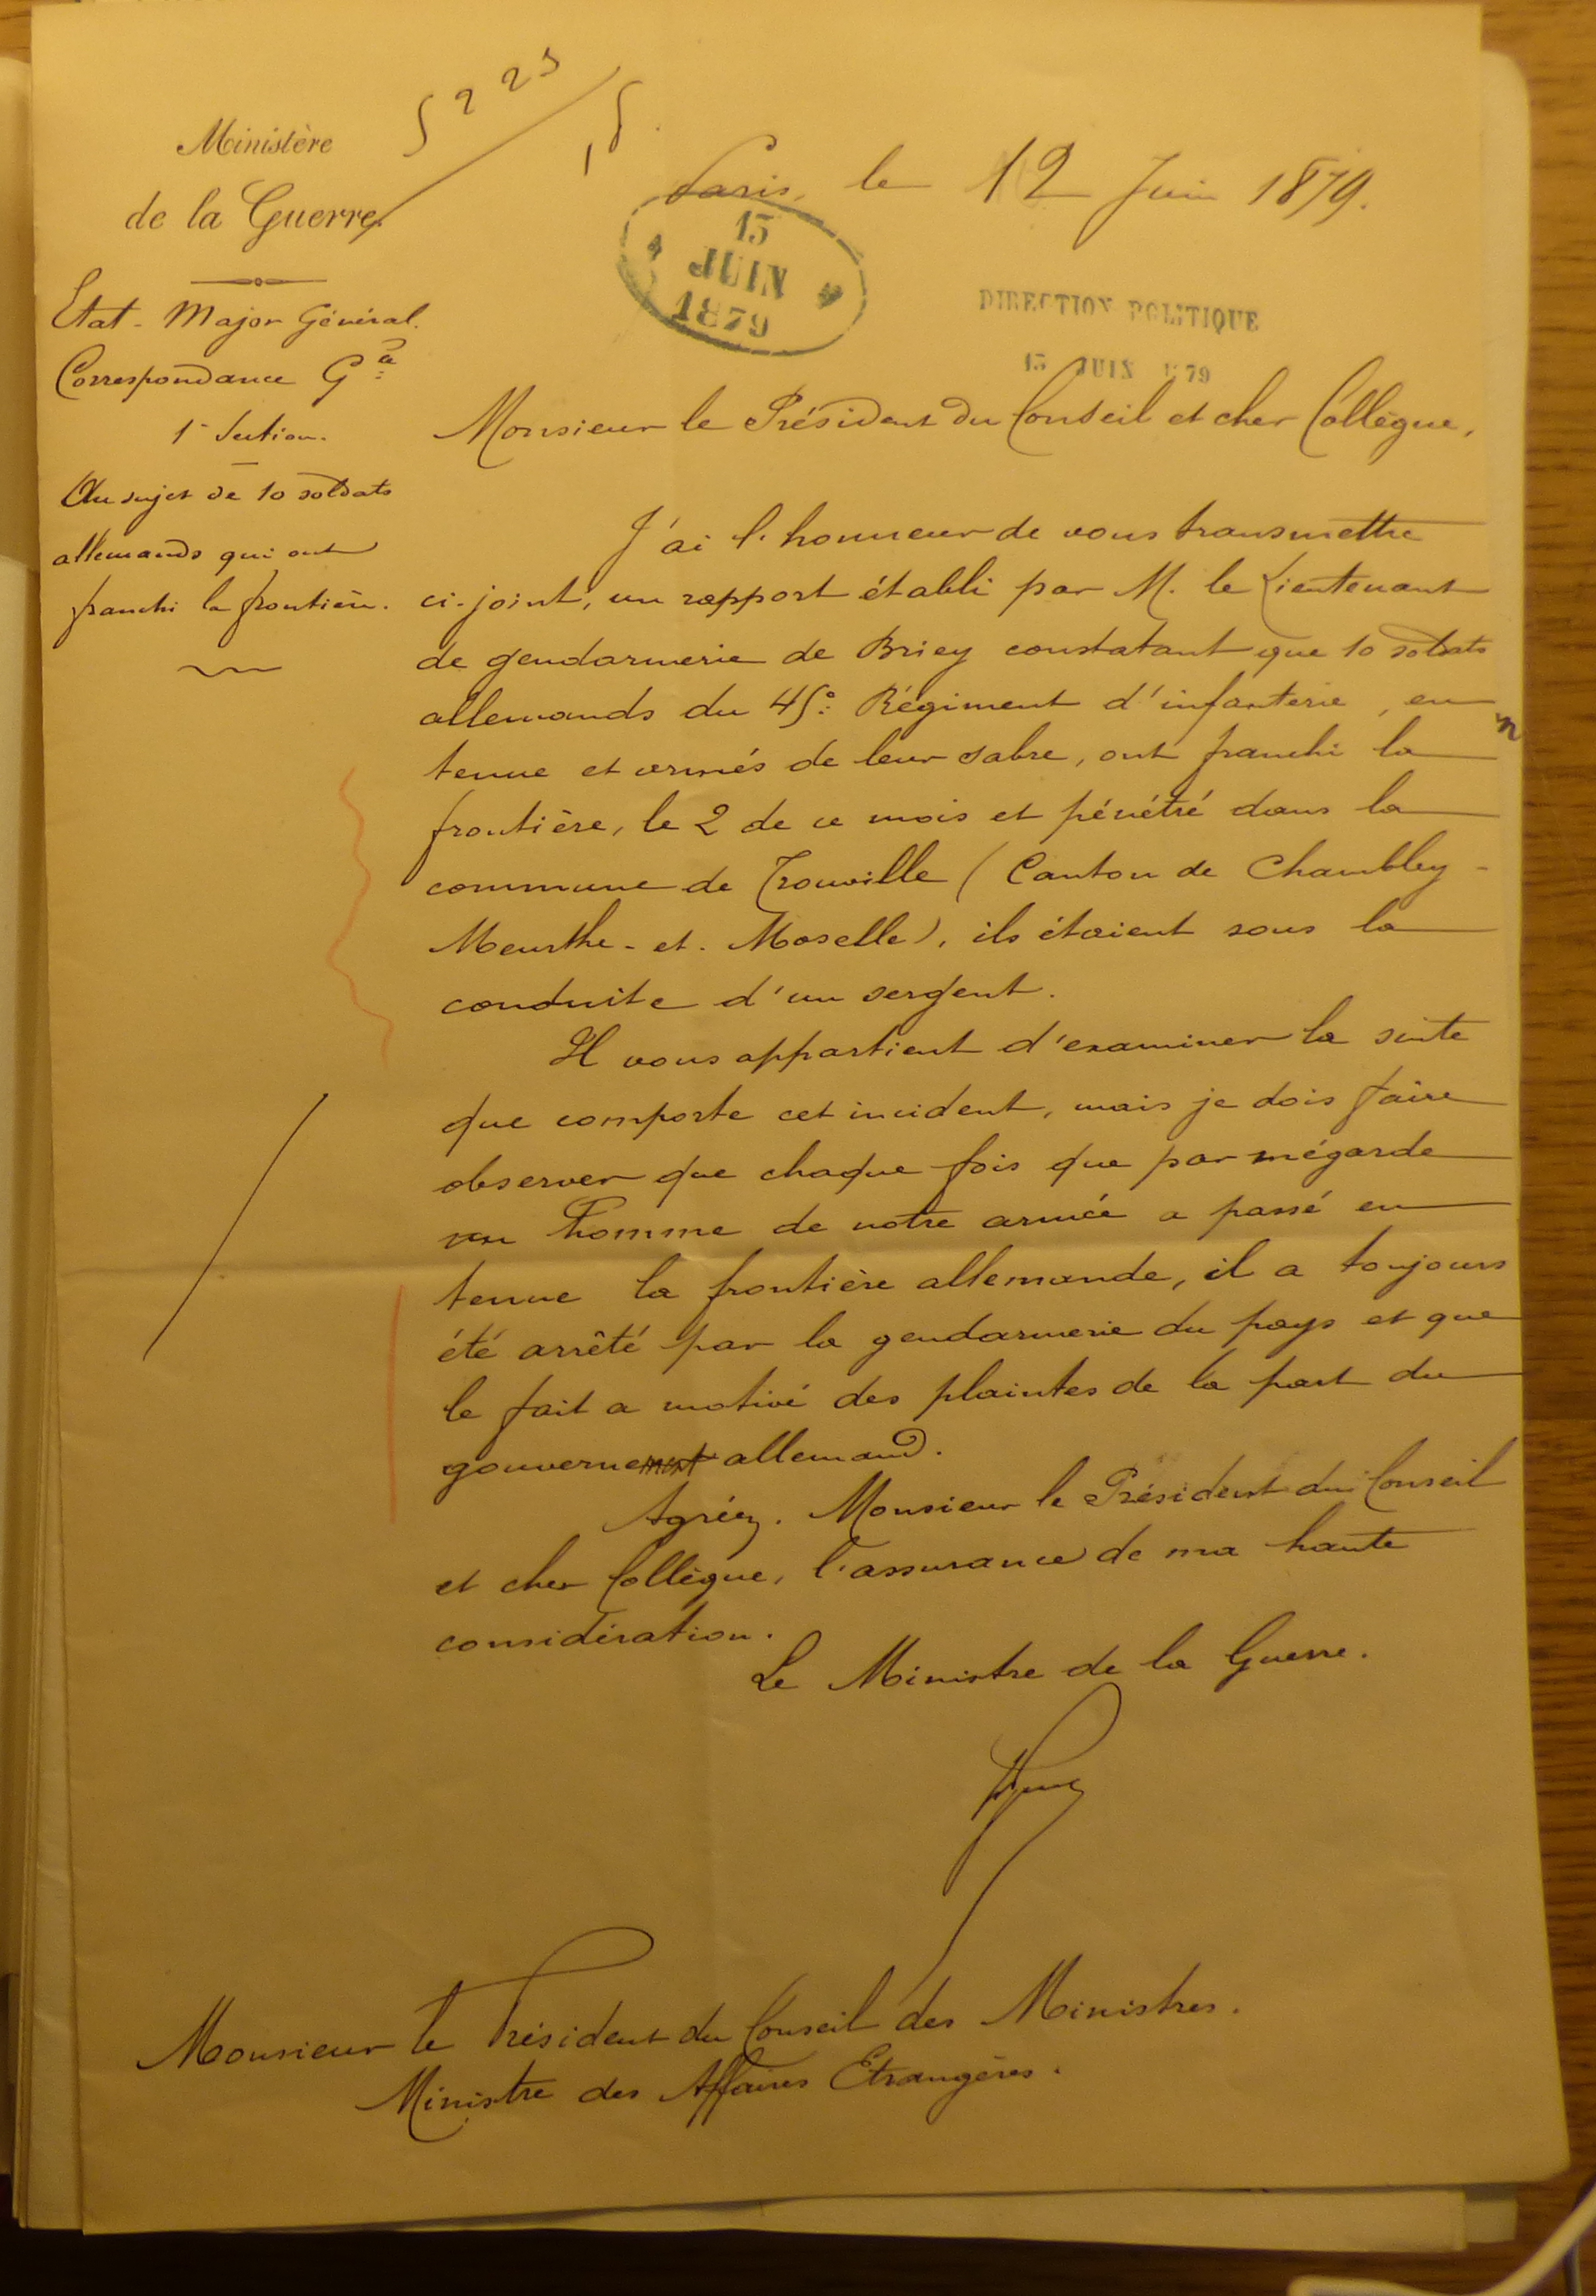 5223
15
Ministère
de la Guerre
Paris, le 12 Juin 1879.
15
JUIN
1879
DIRECTION POLITIQUE
15 JUIN 1879
Etat-Major Général.
Correspondance Gale
1e Section.
Au sujet de 10 soldats
allemands qui ont
franchi la frontière.
Monsieur le Président du Conseil et cher Collègue,
J'ai l'honneur de vous transmettre
ci-joint, un rapport établi par M. le Lieutenant
de gendarmerie de Briey constatant que 10 soldats
allemands du 45e Régiment d'infanterie, en
tenue et armés de leur sabre, ont franchi la
frontière, le 2 de ce mois et pénétré dans la
commune de Tronville (Canton de Chambley -
Meurthe-et-Moselle), ils étaient sous la
conduite d'un sergent.
Il vous appartient d'examiner la suite
que comporte cet incident, mais je dois faire
observer que chaque fois que par mégarde
un homme de notre armée a passé en
tenue la frontière allemande, il a toujours
été arrêté par la gendarmerie du pays et que
le fait a motivé des plaintes de la part du
gouvernement allemand.
Agréez, Monsieur le Président du Conseil
et cher Collègue, l'assurance de ma haute
considération.
Le Ministre de la Guerre.
Monsieur le Président du Conseil des Ministres.
Ministre des Affaires Etrangères.